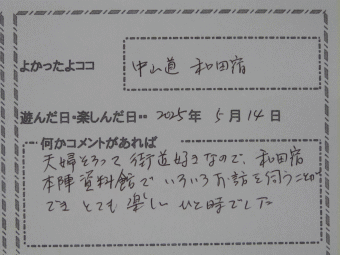 よかったよココ
中山道 和田宿
遊んだ日・楽しんだ日・・ 2025年 5月14日
何かコメントがあれば
夫婦そろって街道好きなので、和田宿
本陣資料館でいろいろお話を伺うことが
でき とても楽しいひと時でした